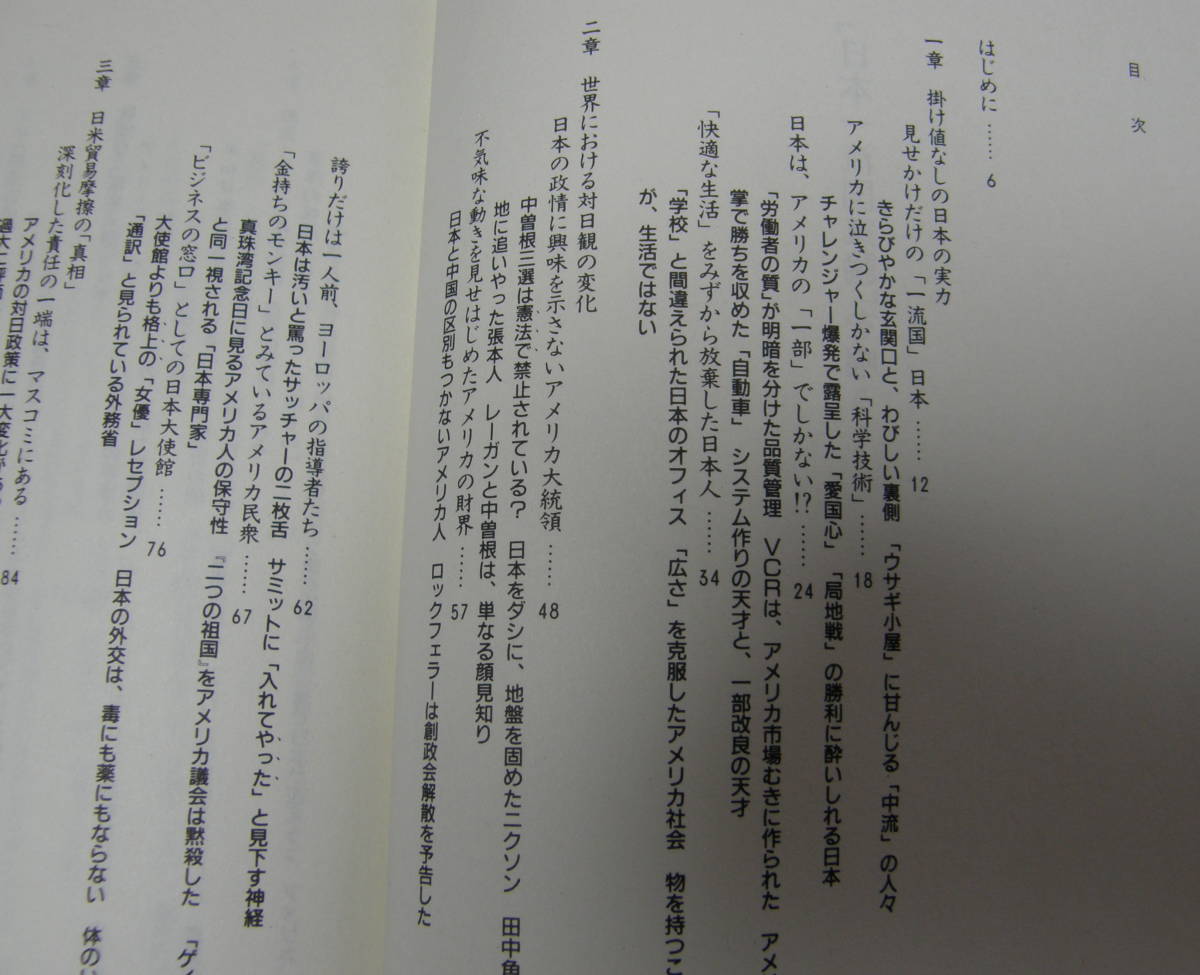 目次
はじめに …… 6
一章 掛け値なしの日本の実力
見せかけだけの「一流国」日本 …… 12
きらびやかな玄関口と、わびしい裏側 「ウサギ小屋」に甘んじる「中流」の人々
アメリカに泣きつくしかない「科学技術」 …… 18
チャレンジャー爆発で露呈した「愛国心」 「局地戦」の勝利に酔いしれる日本
日本は、アメリカの「一部」でしかない!? …… 24
「労働者の質」が明暗を分けた品質管理 VCRは、アメリカ市場むきに作られた アメ
掌で勝ちを収めた「自動車」 システム作りの天才と、一部改良の天才
「快適な生活」をみずから放棄した日本人 …… 34
「学校」と間違えられた日本のオフィス 「広さ」を克服したアメリカ社会 物を持つこ
が、生活ではない
二章 世界における対日観の変化
日本の政情に興味を示さないアメリカ大統領 …… 48
中曽根三選は憲法で禁止されている? 日本をダシに、地盤を固めたニクソン 田中角
地に追いやった張本人 レーガンと中曽根は、単なる顔見知り
不気味な動きを見せはじめたアメリカの財界 …… 57
日本と中国の区別もつかないアメリカ人 ロックフェラーは創政会解散を予告した
誇りだけは一人前、ヨーロッパの指導者たち …… 62
日本は汚いと罵ったサッチャーの二枚舌 サミットに「入れてやった」と見下す神経
「金持ちのモンキー」とみているアメリカ民衆 …… 67
真珠湾記念日に見るアメリカ人の保守性 『二つの祖国』をアメリカ議会は黙殺した 「ゲイ
と同一視される「日本専門家」
「ビジネスの窓口」としての日本大使館 …… 76
大使館よりも格上の「女優」レセプション 日本の外交は、毒にも薬にもならない 体のい
「通訳」と見られている外務省
三章 日米貿易摩擦の「真相」
深刻化した責任の一端は、マスコミにある …… 84
アメリカの対日政策に一大変化が